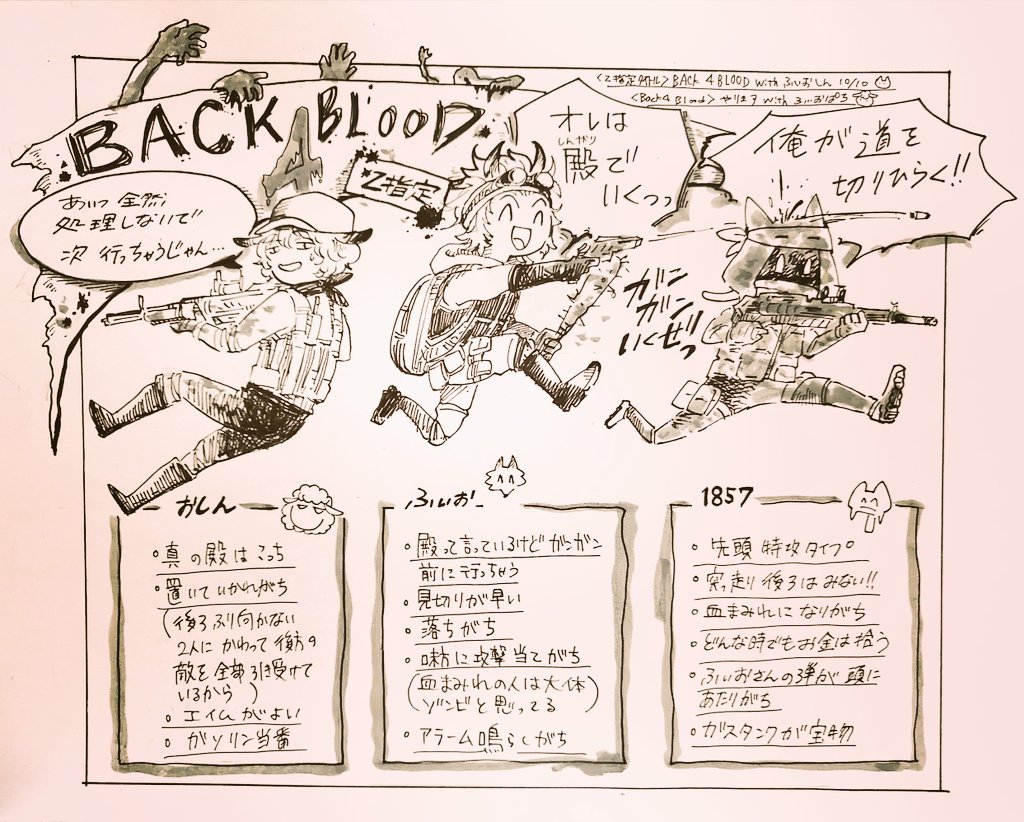 <Z指定タイトル> BACK 4 BLOOD with ふぃおしん 10/10
<Back 4 Blood> やります with ふぃおぱち
BACK 4 BLOOD
Z指定
あいつ全然
処理しないで
次行っちゃうじゃん…
オレは
しんがり
殿で
いくっっ
俺が道を
切りひらく!!
ガン
ガン
いくぜっ
おしん
・真の殿はこっち
・置いていかれがち
(後ろふり向かない
2人にかわって後方の
敵を全部引き受けて
いるから)
・エイムがよい
・ガソリン当番
ふぃお
・殿って言っているけどガンガン
前に行っちゃう
・見切りが早い
・落ちがち
・味方に攻撃当てがち
(血まみれの人は大体
ゾンビと思ってる)
・アラーム鳴らしがち
1857
・先頭特攻タイプ。
・突っ走り後ろはみない!!
・血まみれになりがち
・どんな時でもお金は拾う
・ふぃおさんの弾が頭に
あたりがち
・ガスタンクが宝物